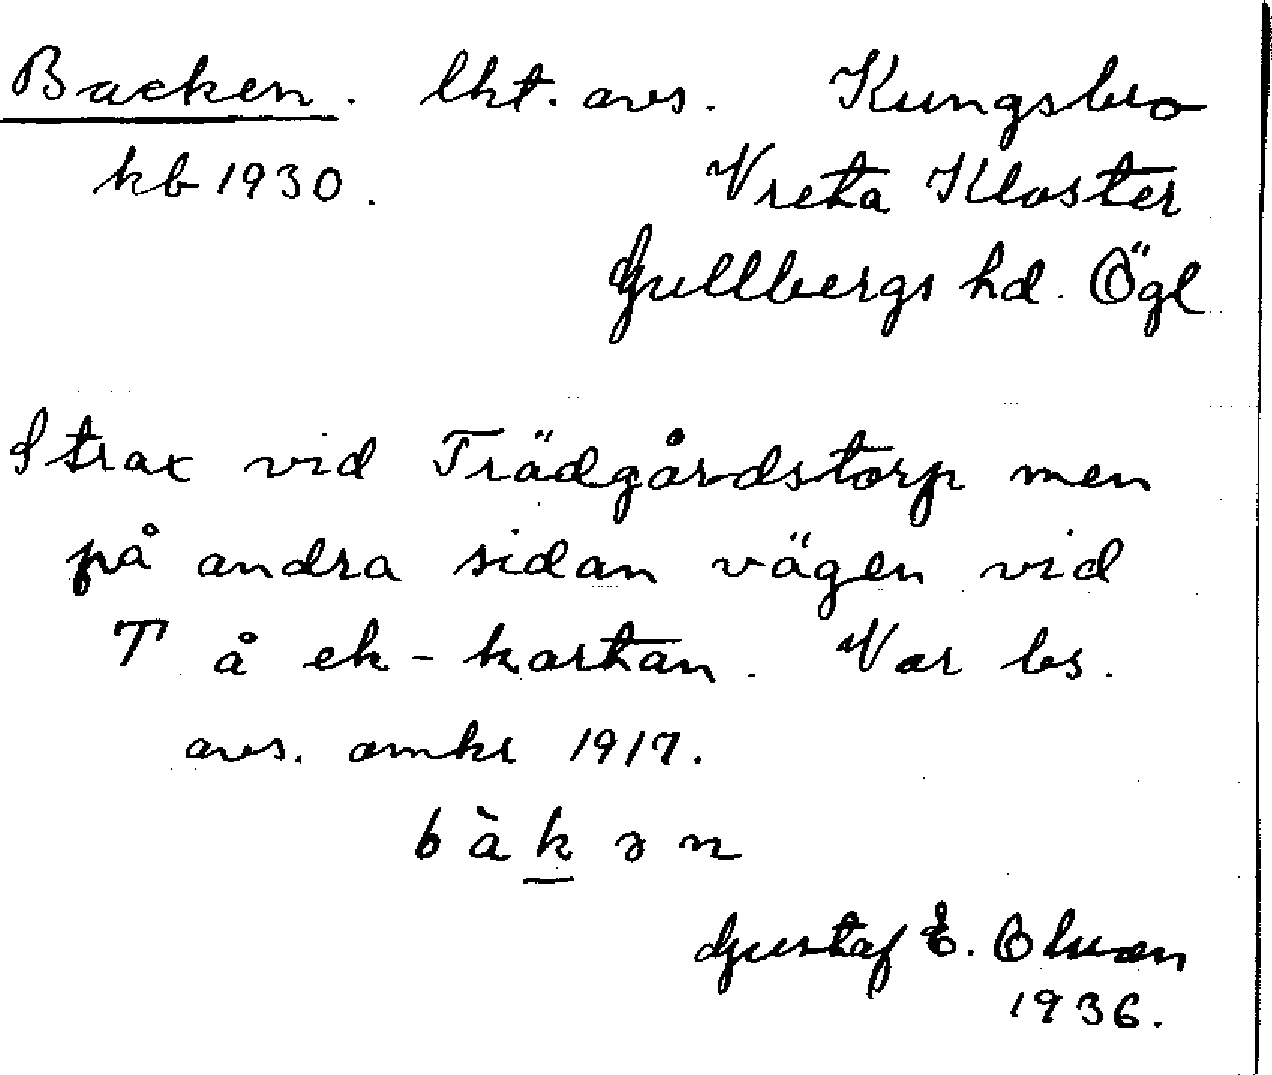 Backen. lht. avs. Kungsbro
kb 1930. Vreta Kloster
Gullbergs hd. Ögl
Strax vid Trädgårdstorp men
på andra sidan vägen vid
T å ek-kartan. Var bs.
avs. omkr 1917.
bàkən
Gustaf E. Olsson
1936.